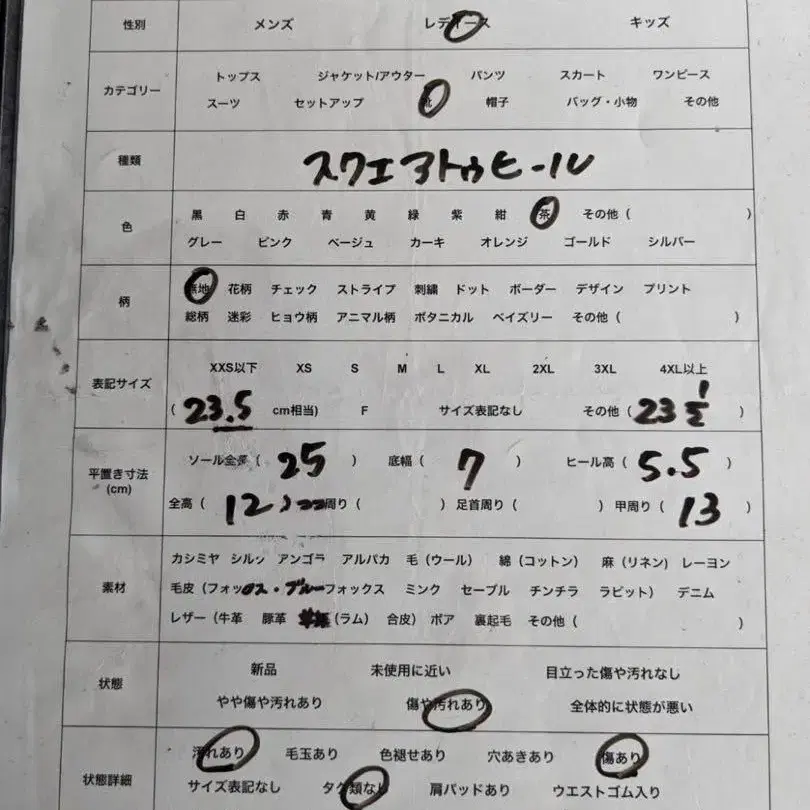 性別 メンズ レディース キッズ
カテゴリー トップス ジャケット/アウター パンツ スカート ワンピース
スーツ セットアップ 靴 帽子 バッグ・小物 その他
種類 スクエアトゥヒール
色 黒 白 赤 青 黄 緑 紫 紺 茶 その他 ( )
グレー ピンク ベージュ カーキ オレンジ ゴールド シルバー
柄 無地 花柄 チェック ストライプ 刺繍 ドット ボーダー デザイン プリント
総柄 迷彩 ヒョウ柄 アニマル柄 ボタニカル ペイズリー その他 ( )
表記サイズ XXS以下 XS S M L XL 2XL 3XL 4XL以上
( 23.5 cm相当) F サイズ表記なし その他 ( 23 1/2 )
平置き寸法 (cm) ソール全長 ( 25 ) 底幅 ( 7 ) ヒール高 ( 5.5 )
全高 ( 12 ) 周り ( ) 足首周り ( ) 甲周り ( 13 )
素材 カシミヤ シルク アンゴラ アルパカ 毛 (ウール) 綿 (コットン) 麻 (リネン) レーヨン
毛皮 (フォックス・ブルーフォックス ミンク セーブル チンチラ ラビット) デニム
レザー (牛革 豚革 (ラム) 合皮) ボア 裏起毛 その他 ( )
状態 新品 未使用に近い 目立った傷や汚れなし
やや傷や汚れあり 傷や汚れあり 全体的に状態が悪い
状態詳細 汚れあり 毛玉あり 色褪せあり 穴あきあり 傷あり
サイズ表記なし タグ類なし 肩パッドあり ウエストゴム入り